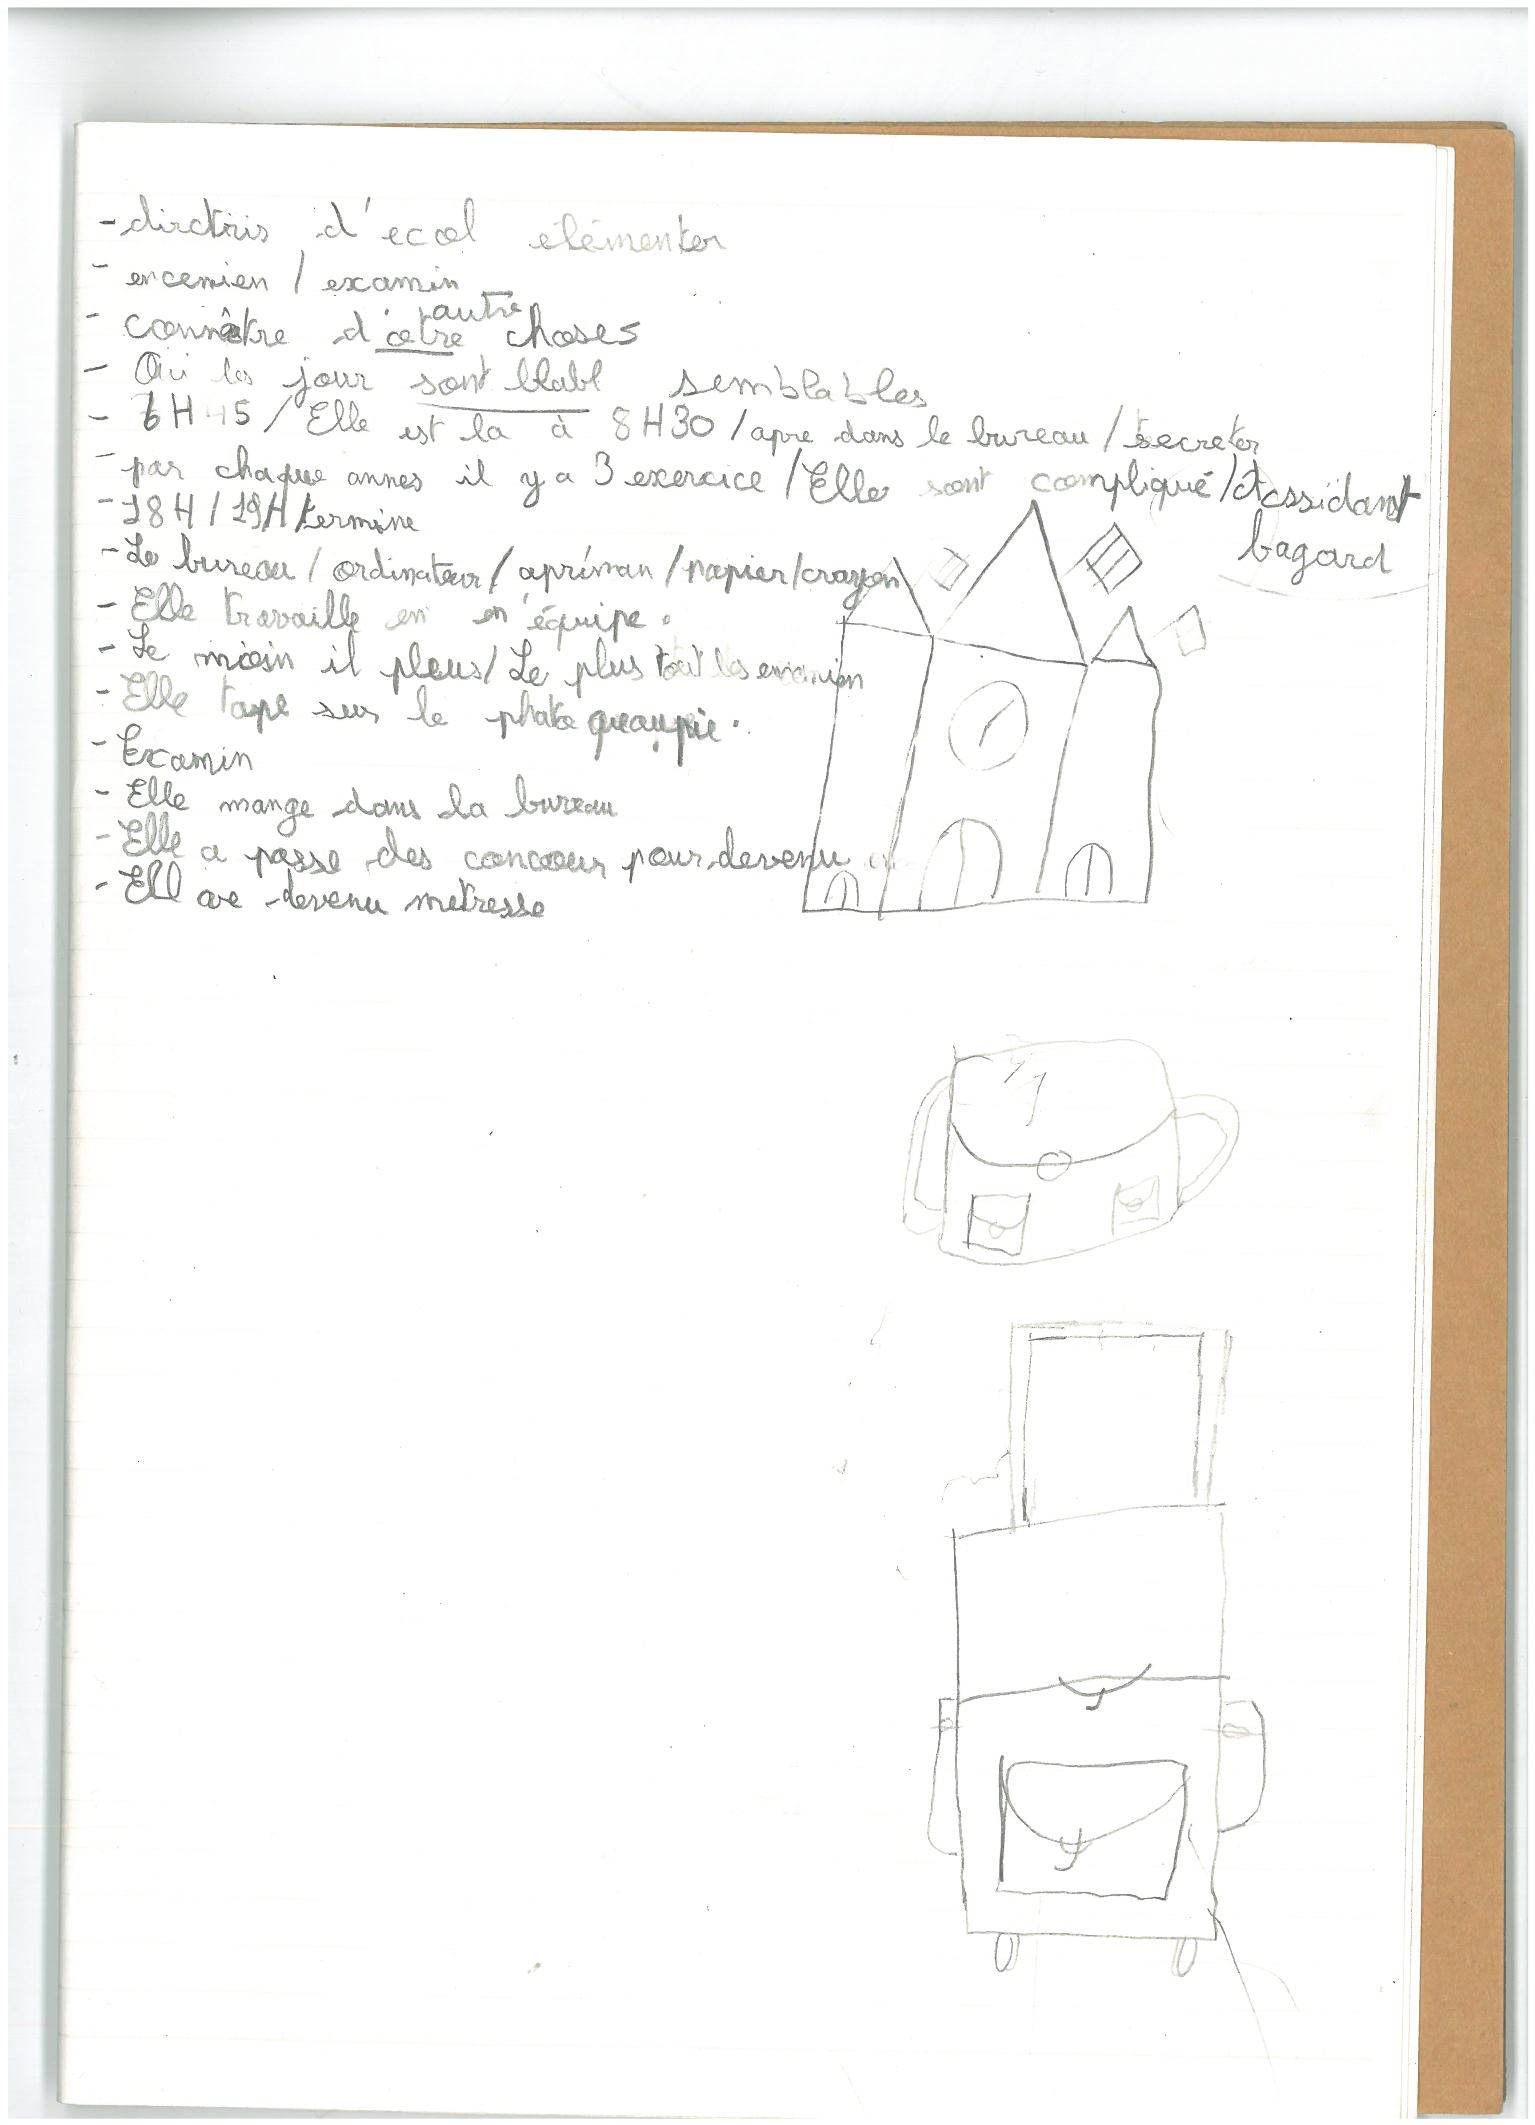 - dirctris d'ecol élémenter
- encemien / examin
autre
- connâtre d'otre choses
- Oui les jour sont blabl semblables
- 6H45 / Elle est la à 8H30 / apre dans le bureau / secreter
- par chaque annes il y a 3 exercice / Elle sont compliqué / Assidant
bagard
- 18H / 19H / termine
- Le bureau / ordinateur / apréman / papier / crayon
- Elle travaille en en équipe.
- Le moin il pleus / Le plus tout les
- Elle tape sur le phato
- Examin
- Elle mange dans la bureau
- Elle a passe des concour pour devenu
- Ell ae devenu metresse